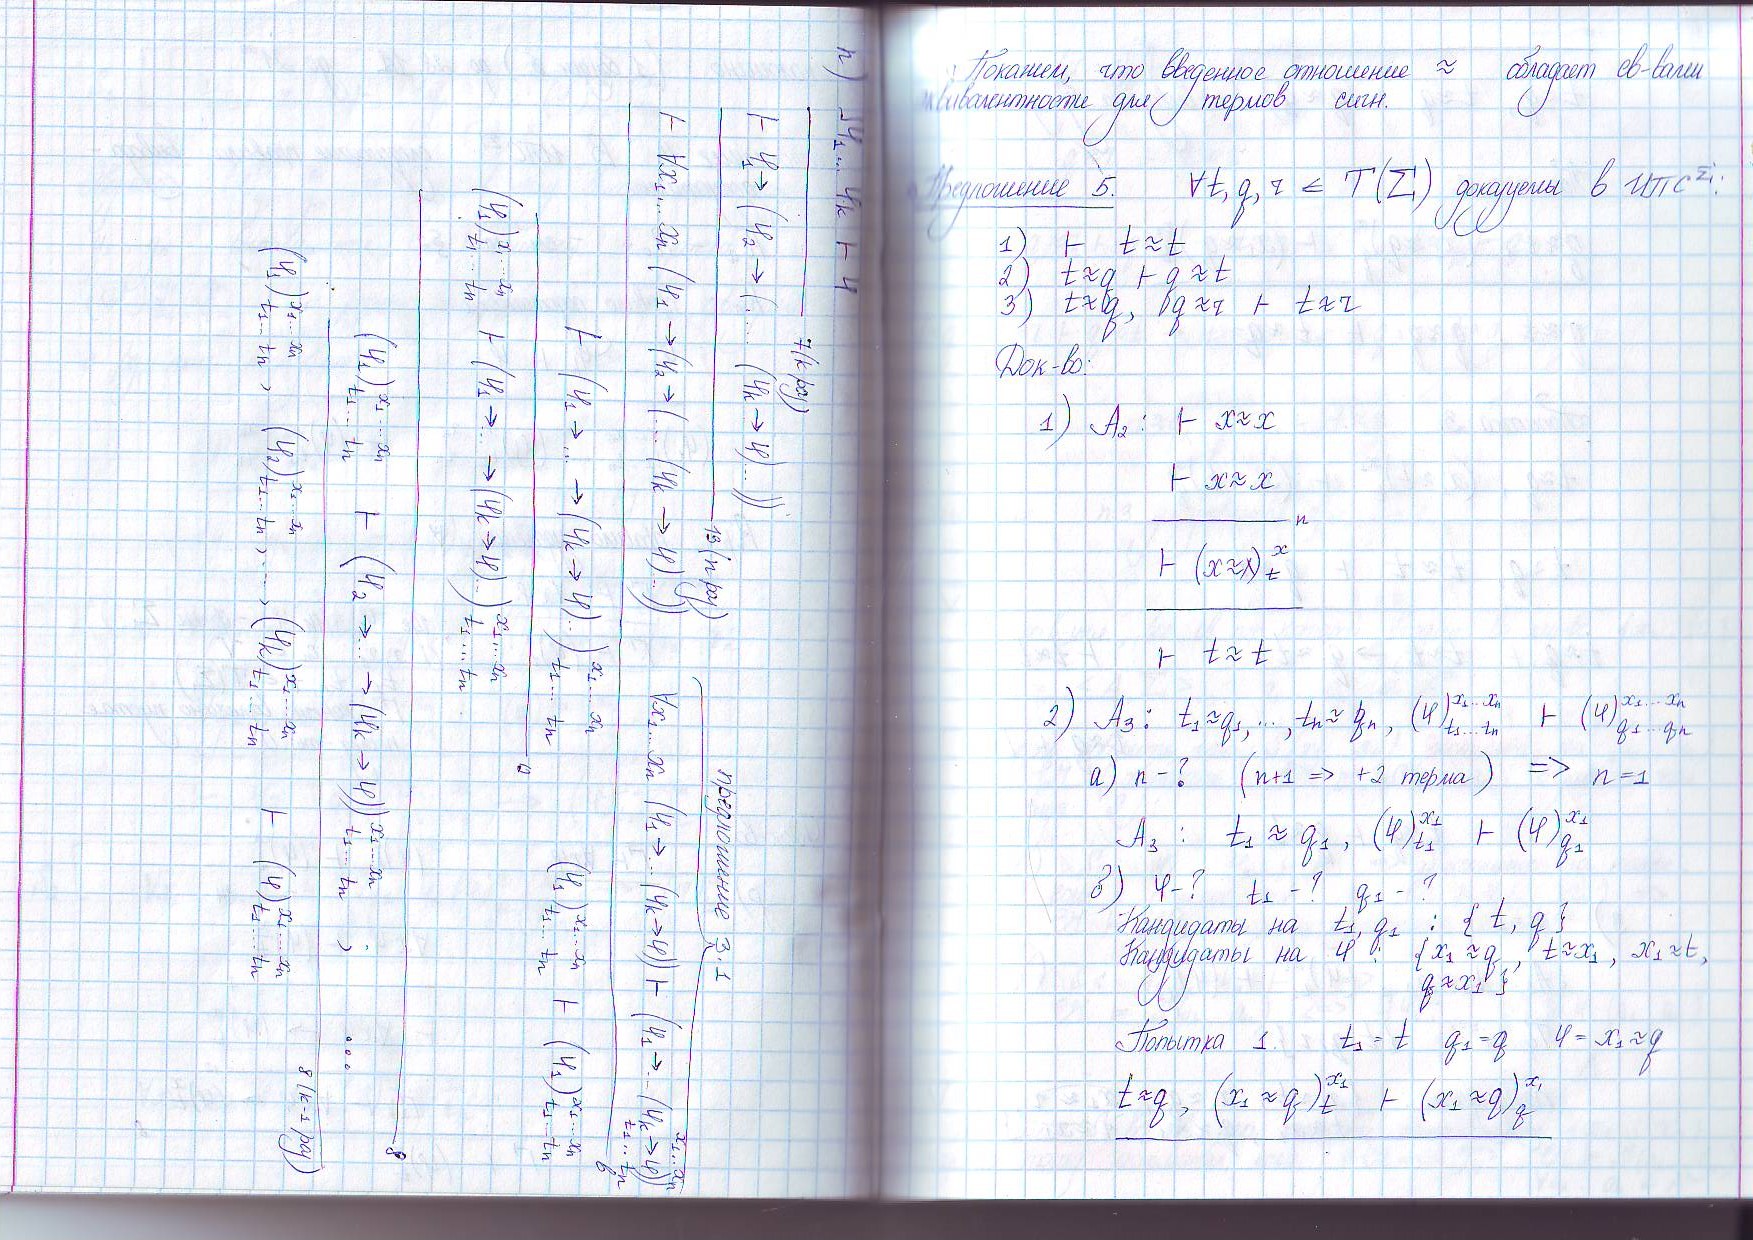 п) ψ₁...ψₖ ⊢ ψ
7(k раз)
⊢ ψ₁→(ψ₂→(.... (ψₖ→ψ)...))
13(n раз)
⊢ ∀x₁...xₙ (ψ₁→(ψ₂→(.... (ψₖ→ψ)...)) ∀x₁...xₙ (ψ₁→... (ψₖ→ψ)) ⊢ (ψ₁→... (ψₖ→ψ))^{x₁...xₙ}_{t₁...tₙ}
предложение 3.1
⊢ (ψ₁→... →(ψₖ→ψ)...)^{x₁...xₙ}_{t₁...tₙ} (ψ₁)^{x₁...xₙ}_{t₁...tₙ} ⊢ (ψ₁)^{x₁...xₙ}_{t₁...tₙ}
(ψ₁)^{x₁...xₙ}_{t₁...tₙ} ⊢ (ψ₁→... →(ψₖ→ψ)...)^{x₁...xₙ}_{t₁...tₙ}
(ψ₁)^{x₁...xₙ}_{t₁...tₙ} ⊢ (ψ₂→... →(ψₖ→ψ))^{x₁...xₙ}_{t₁...tₙ} ; ...
8(k-1 раз)
(ψ₁)^{x₁...xₙ}_{t₁...tₙ}, (ψ₂)^{x₁...xₙ}_{t₁...tₙ}, ..., (ψₖ)^{x₁...xₙ}_{t₁...tₙ} ⊢ (ψ)^{x₁...xₙ}_{t₁...tₙ}
Покажем, что введенное отношение ≈ обладает св-вами
эквивалентности для термов сигн.
Предложение 5. ∀t, q, r ∈ T(Σ) доказуемы в ИПС^Σ:
1) ⊢ t≈t
2) t≈q ⊢ q≈t
3) t≈q, q≈r ⊢ t≈r
Док-во:
1) A₂: ⊢ x≈x
⊢ x≈x
п
⊢ (x≈x)^x_t
⊢ t≈t
2) A₃: t₁≈q₁,...,tₙ≈qₙ, (ψ)^{x₁...xₙ}_{t₁...tₙ} ⊢ (ψ)^{x₁...xₙ}_{q₁...qₙ}
а) n-? (n+1 => +2 терма) => n=1
A₃: t₁≈q₁, (ψ)^{x₁}_{t₁} ⊢ (ψ)^{x₁}_{q₁}
б) ψ-? t₁-? q₁-?
Кандидаты на t₁, q₁ : {t, q}
Кандидаты на ψ : {x₁≈q, t≈x₁, x₁≈t,
q≈x₁}
Попытка 1. t₁=t q₁=q ψ=x₁≈q
t≈q, (x₁≈q)^{x₁}_t ⊢ (x₁≈q)^{x₁}_q